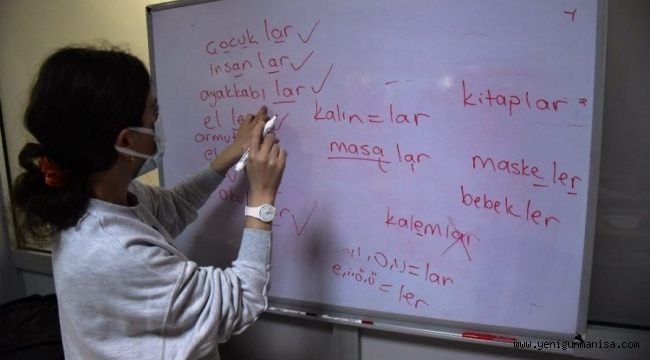 çocuk lar ✓
insan lar ✓
ayakkabı lar ✓
el ler ✓
armut
el
okul lar ✓
kalın = lar
masa lar
kalemlar
a, ı, o, u = lar
e, i, ö, ü = ler
kitaplar
maske ler
bebekler
www.yenigunmanisa.com